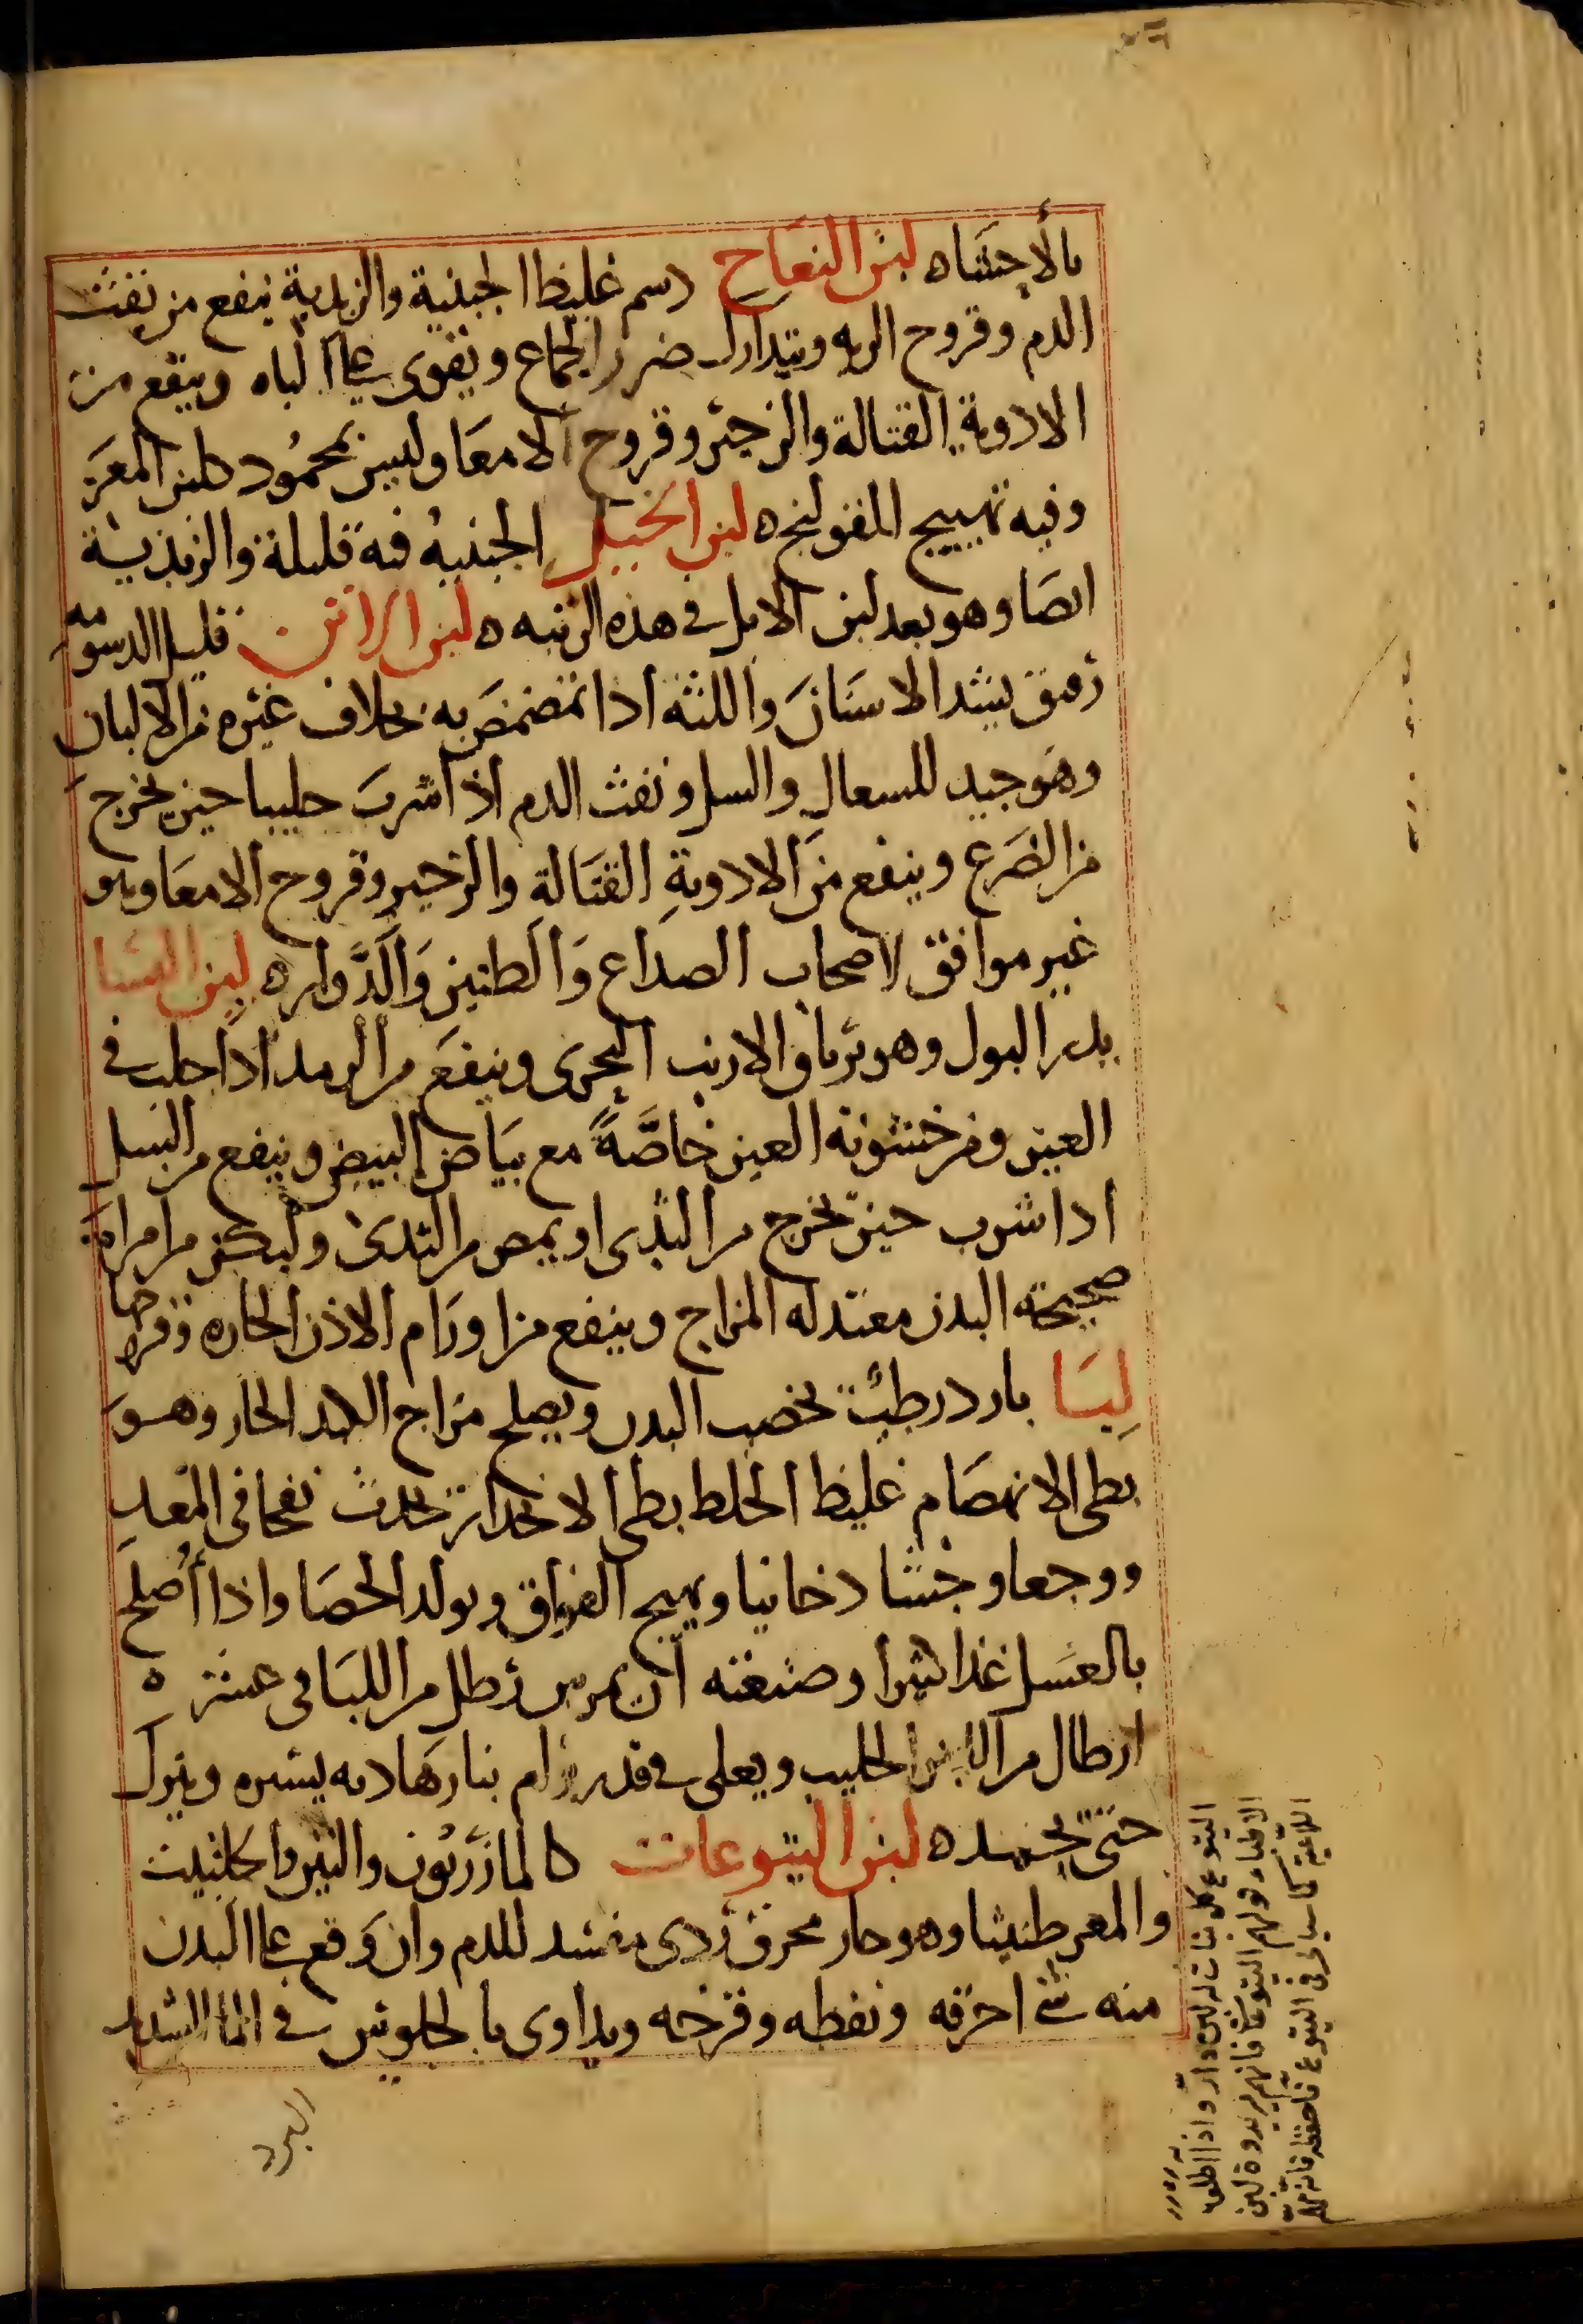 بالأحشاه لبن النعاج دسم غليظ الجبنية والزبدية ينفع من نفث
الدم وقروح الريه ويتدارك ضرر الجماع ويقوى على الباه وينفع من
الادوية القتالة والزحير وقروح الامعا وليس بمحمود كلبن المعز
وفيه تهييج للقولنج ه لبن الخيل الجبنيه فيه قليلة والزبدية
ايضا وهو بعد لبن الابل في هذه الرتبه ه لبن الاتن قليل الدسومه
رقيق يشد الاسنان واللثة اذا تمضمض به بخلاف غيره من الالبان
وهو جيد للسعال والسل ونفث الدم اذا شرب حليبا حين يخرج
من الضرع وينفع من الادوية القتالة والزحير وقروح الامعا وهو
غير موافق لاصحاب الصداع والطنين والدوار ه لبن النسا
يدر البول وهو ترياق الارنب البحرى وينفع من الرمد اذا حلب في
العين ومن خشونة العين خاصة مع بياض البيض وينفع من السل
اذا شرب حين يخرج من الثدى او يمص من الثدى وليكن من امراة
صحيحة البدن معتدله المزاج وينفع من اورام الاذن الحاره وقروحها
لبا بارد رطب يخصب البدن ويصلح مزاج الكبد الحار وهو
بطى الانهضام غليظ الخلط بطى الانحدار يحدث نفخا فى المعد
ووجعا وجشا دخانيا ويهيج الفواق ويولد الحصا واذا أصلح
بالعسل غذا كثيرا وصنعته ان يمرس رطل من اللبا فى عشرة ه
ارطال من اللبن الحليب ويغلى في قدر برام بنار هاديه يسيره ويترك
حتى يجمد ه لبن اليتوعات كالمازريون والتين والحلتيت
والمعرطنيثا وهو حار محرق ردى مفسد للدم وان وقع على البدن
منه شئ احرقه ونفطه وقرحه ويداوى بالجلوس في الما الشديد
البرد
اليتوع كل نبات له لبن دار واذا اطلق
الاطباء قولهم اليتوعات فانهم يريدون لبن
اللاعية كما سياتى فى اليتوع فاحفظه فانه مهم